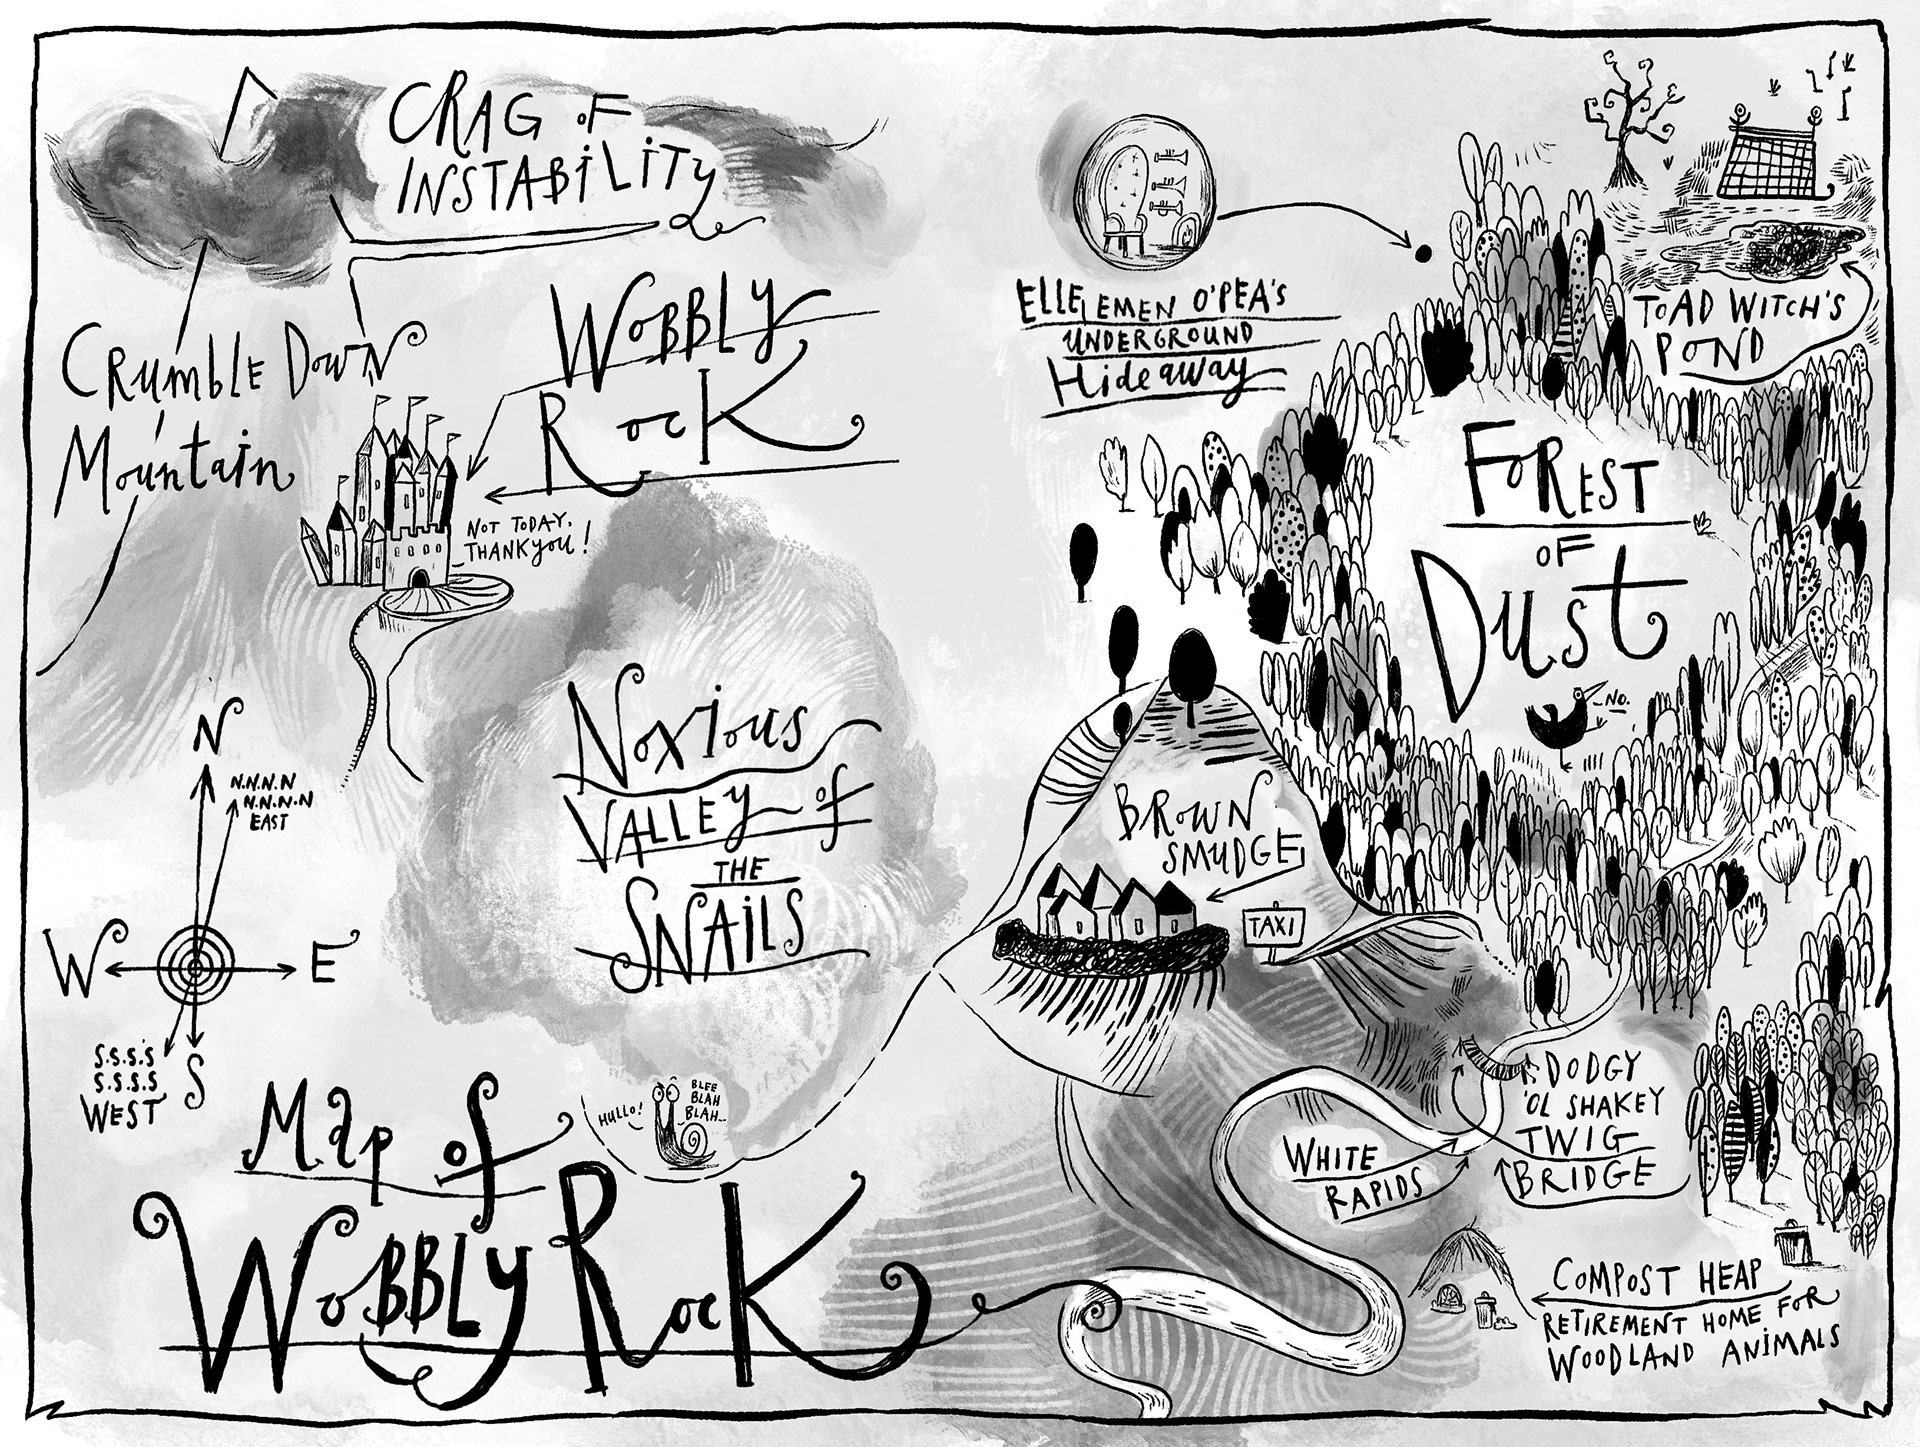 CRAG OF
INSTABILITY
CRUMBLE DOWN
MOUNTAIN
WOBBLY
ROCK
NOT TODAY,
THANKYOU!
ELLEEMEN O'PEA'S
UNDERGROUND
HIDEAWAY
TOAD WITCH'S
POND
FOREST
OF
DUST
NO.
NOXIOUS
VALLEY OF
THE
SNAILS
BROWN
SMUDGE
TAXI
N
N.N.N.N
N.N.N.N
EAST
W
E
S.S.S.'S
S.S.S.S
WEST
S
HULLO!
BLEE
BLAH
BLAH...
DODGY
'OL SHAKEY
TWIG
BRIDGE
WHITE
RAPIDS
COMPOST HEAP
RETIREMENT HOME FOR
WOODLAND ANIMALS
MAP OF
WOBBLY ROCK